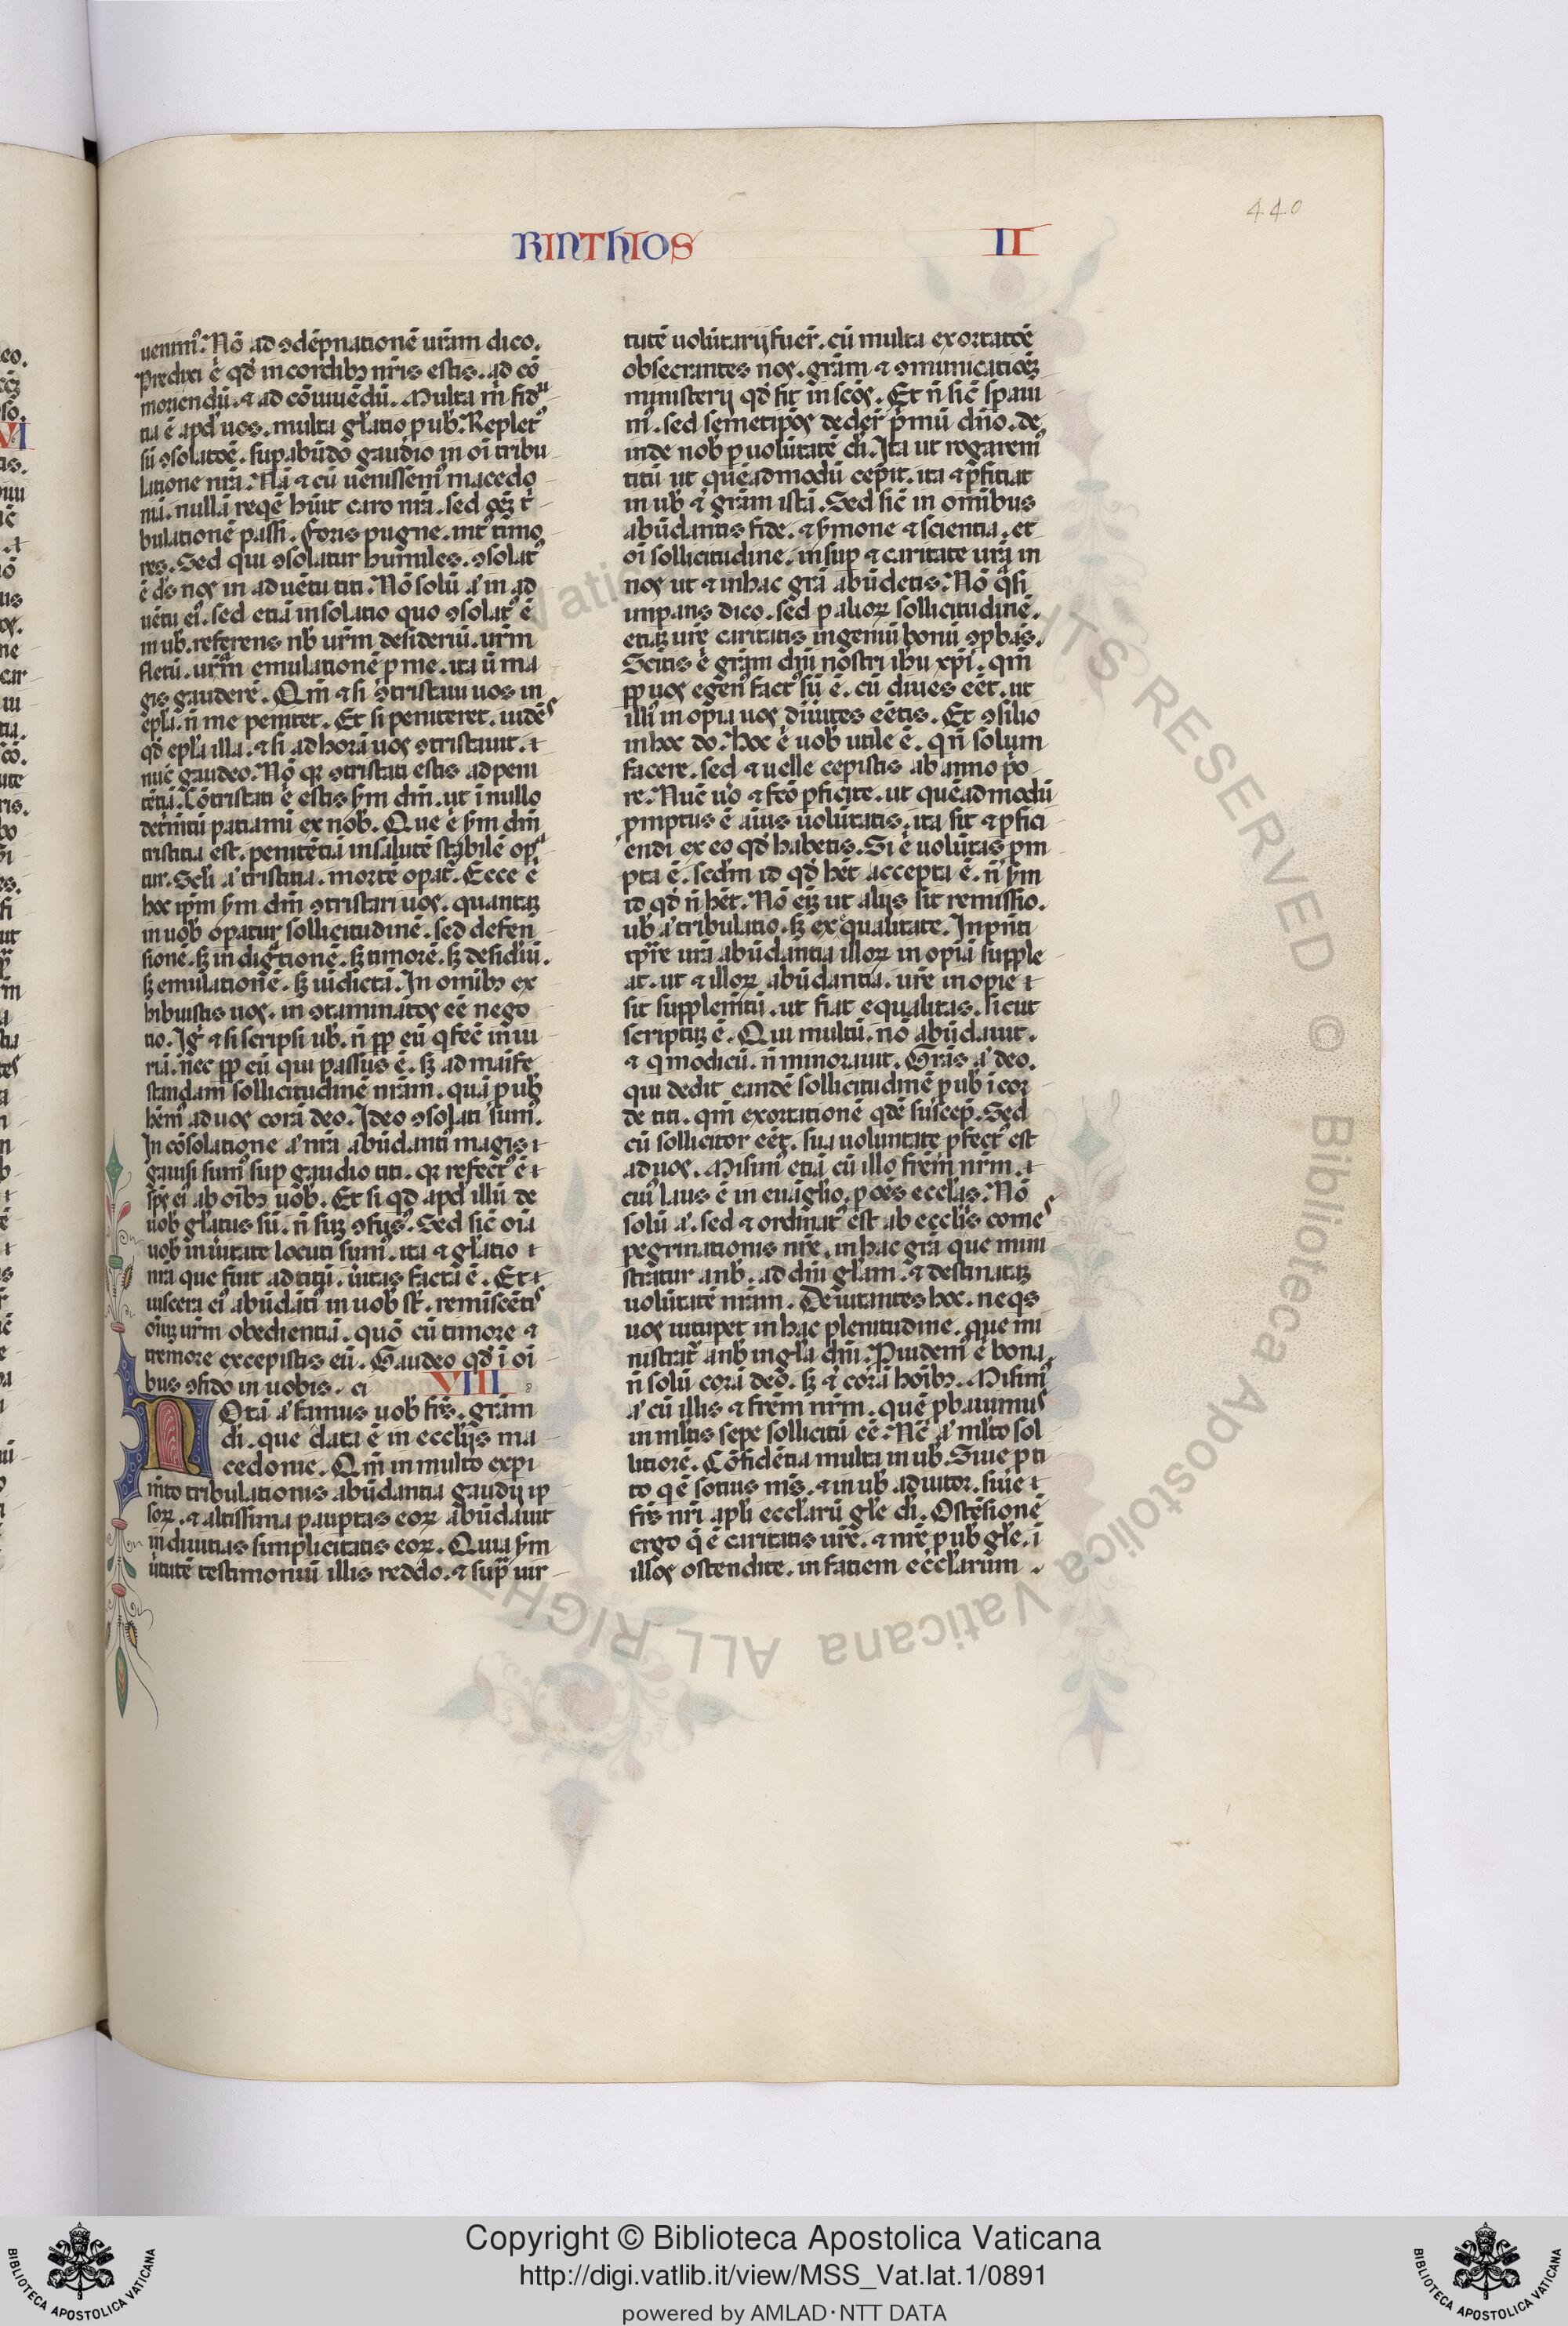 440
RINTHIOS II
uenim᷒. Nō ad ↄdēpnationē urām dico.
Predixi ē qđ in cordibꝫ nr̄is estis. ad cō
moriendū. ⁊ ad cōuiuēdū. Multa m̄ fidu
tia ē apđ uos. multa gl̄atio ꝑ ub̄. Replet᷒
sū ↄsolatōe. suꝑabūdo gaudio in oī tribu
latione nrā. Nā ⁊ cū uenissem᷒ macedo
niā. nullā reqē hūit caro nrā. sed oēꝫ tⁱ
bulationē passi. Foris pugne. int᷒ timo
res. Sed qui ↄsolatur humiles. ↄsolat᷒
ē ds̄ nos in aduētu titi. Nō solū a͛ in ad
uētu ei᷒. sed etiā in solatio quo ↄsolat᷒ ē
in ub̄. referens nb̄ urm̄ desideriū. urm̄
fletū. urām emulationē ꝑ me. ita ū ma
gis gauderē. Qm̄ ⁊ si ↄtristaui uos in
epl̄a. n̄ me penitet. Et si peniteret. uidēs
qđ epl̄a illa. ⁊ si ad horā uos ↄtristauit.
nūc gaudeo. Nō qꝛ ↄtristati estis ad peni
tētiā. Cōtristati ē estis ẜm dm̄. ut ī nullo
det̄mtū patiami ex nob̄. Que ē ẜm dm̄
tristitia est. penitētiā in salutē stabilē opa
tur. Scl̄i a͛ tristitia. mortē opat᷒. Ecce ē
hoc ip̄m ẜm dm̄ ↄtristari uos. quantaꝫ
in uob̄ opatur sollicitudinē. sed defen
sionē. sꝫ indigtionē. sꝫ timorē. sꝫ desid̄iū.
sꝫ emulationē. sꝫ uīdictā. In omībꝫ ex
hibuistis uos. in ↄtaminātos ēē nego
tio. Ig᷒ ⁊ si scripsi ub̄. n̄ ꝓp eū q fec̄ iniu
riā. nec ꝓp eū qui passus ē. sꝫ ad maife
standam sollicitudinē nrām. quā ꝑ ub̄
hēm᷒ ad uos corā deo. Ideo ↄsolati sum᷒.
In cōsolatione a͛ nrā abūdanti᷒ magis
gauisi sum᷒ suꝑ gaudio titi. qꝛ refect᷒ ē
sps̄ ei᷒ ab oībꝫ uob̄. Et si qđ apđ illū de
uob̄ gl̄atus sū. n̄ sūꝫ ↄfus᷒. Sed sic̄ oīa
uob̄ in ūitate locuti sum᷒. ita ⁊ gl̄atio
nrā que fuit ad titū. ūitas facta ē. Et
uiscera ei᷒ abūdāti᷒ in uob̄ st̄. remiscētis
oīuꝫ urm̄ obedientiā. quō cū timore ⁊
tremore excepistis eū. Gaudeo qđ ī oī
bus ↄfido in uobis. ei VIII 8
Notā a͛ famus uob̄ frs̄. grām
di. que data ē in eccl̄ijs ma
cedonie. Qm̄ in multo expi
mto tribulationis abūdantia gaudij ip
soꝝ. ⁊ altissima pauptas eoꝝ abūdauit
in diuitias simplicitatis eoꝝ. Quia ẜm
ūtutē testimoniū illis reddo. ⁊ suꝑ uir
tutē uolūtarij fuer̄. cū multa exortatōē
obsecrantes nos. grām ⁊ ↄmunicatiōeꝫ
ministerij qđ fit in scōs. Et n̄ sic̄ spaui
m᷒. sed semetipōs deder̄ pⁱmū dn̄o. de
inde nob̄ ꝑ uolūtatē di. Ita ut rogarem᷒
titū ut quēadmodū cepit. ita ⁊ ꝑficiat
in ub̄ ⁊ grām istā. Sed sic̄ in omībus
abūdantis fide. ⁊ ẜmone ⁊ scientia. et
oī sollicitudine. insuꝑ ⁊ caritate urā in
nos ut ⁊ in hac grā abūdetis. Nō qͣsi
impans dico. sed ꝑ alioꝝ sollicitudinē.
etiaꝫ ure caritatis ingeniū bonū ↄprobās.
Scitis ē grām dn̄i nostri ih̄u xp̄i. qm̄
ꝓp uos egen᷒ fact᷒ sū ē. cū diues eēt. ut
illi᷒ inopia uos diuites eētis. Et ↄsiliū
in hoc do. Hoc ē uob̄ utile ē. qn̄ solum
facere. sed ⁊ uelle cepistis ab anno pⁱo
re. Nūc uo ⁊ fcō ꝑficite. ut quēadmodū
ꝓmptus ē aīus uolūtatis. ita sit ⁊ ꝑfici
endi ex eo qđ habetis. Si ē uolūtas ꝓm
pta ē. sedm̄ id qđ hēt accepta ē. n̄ ẜm
id qđ n̄ hēt. Nō eīꝫ ut alijs sit remissio.
ub̄ a͛ tribulatio. sꝫ ex equalitate. In pn̄ti
tp̄re urā abūdantia illoꝝ inopiā supple
at. ut ⁊ illoꝝ abūdantia. ure inopie
sit supplem̄tū. ut fiat equalitas. sicut
scriptūꝫ ē. Qui multū. nō abūdauit.
⁊ q modicū. n̄ minorauit. Grās a͛ deo.
qui dedit eandē sollicitudinē ꝑ ub̄ ī cor
de titi. qm̄ exortationē qdē suscep̄. Sed
cū sollicitor eēt. sua uoluntate ꝓfect᷒ est
ad uos. Misim᷒ etiā cū illo frēm nrm̄.
cui᷒ laus ē in euāgl̄io. ꝑ oēs eccl̄as. Nō
solū a͛. sed ⁊ ordīnat᷒ est ab eccl̄is comes
pegrinationis nrē. in hac grā que mini
stratur anb̄. ad dn̄i gl̄am. ⁊ destinataꝫ
uolūtatē nrām. Deuitantes hoc. ne qs
uos uitupet in hac plenitudine. que mi
nistrat᷒ anb̄ in gl̄a dn̄i. Prouidem᷒ ē bona
n̄ solū corā deo. sꝫ ⁊ corā hoībꝫ. Misim᷒
a͛ cū illis ⁊ frēm nrm̄. quē ꝓbauimus
in mltis sepe sollicitū ēē. Nc̄ a͛ mlto sol
litiorē. Cōfidētia multa in ub̄. Siue ꝓ ti
to q ē sotius ms̄. ⁊ in ub̄ adiutor. siue
frs̄ nri apl̄i eccl̄arū gl̄e di. Ostēsionē
ergo q ē caritatis urē. ⁊ nrē ꝑ ub̄ gl̄e. ī
illos ostendite. in fatiem eccl̄arum.
Copyright © Biblioteca Apostolica Vaticana
http://digi.vatlib.it/view/MSS_Vat.lat.1/0891
powered by AMLAD·NTT DATA